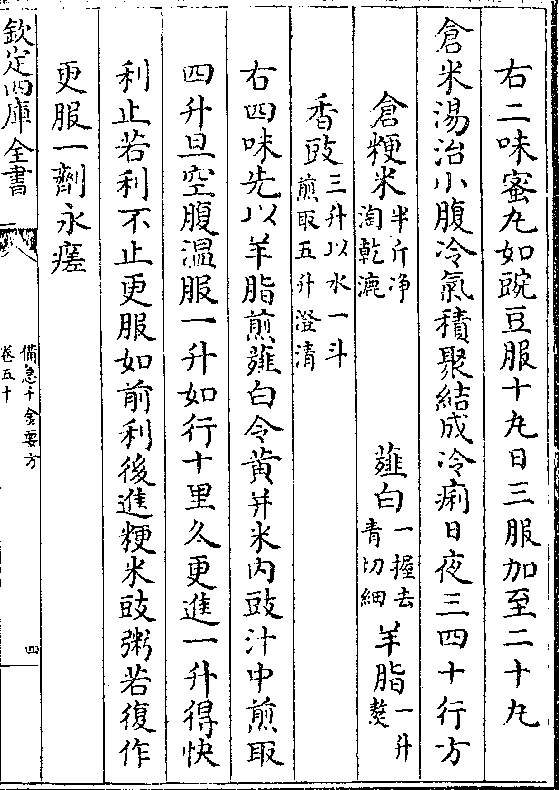 右二味蜜丸如豌豆服十丸日三服加至二十丸
倉米湯治小腹冷氣積聚結成冷痢日夜三四十行方
倉粳米半斤浄淘乾漉 薤白一握去青切細 羊脂一升熬
香豉三升以水一斗煎取五升澄清
右四味先以羊脂煎薤白令黄并米内豉汁中煎取
四升旦空腹温服一升如行十里久更進一升得快
利止若利不止更服如前利後進粳米豉粥若復作
更服一劑永瘥
欽定四庫全書
備急千金要方
卷五十
四